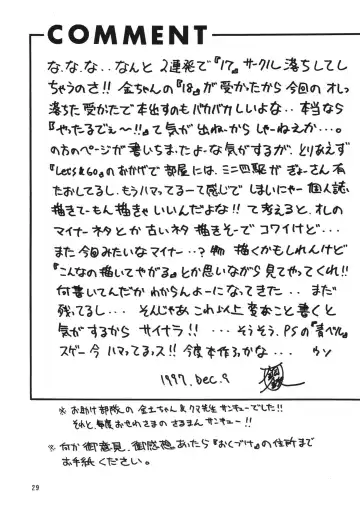 COMMENT
な、な、な‥なんと 2連発で『17』サークル落ちしてし
ちゃうのさ!! 金ちゃんの『18』が受かったから今回のオレっ
落ちた受かったで本出すのもバカバカしいよな‥本当なら
『やったるでぇ〜!!』って気が出ねーからしゃーねえか…。
の方のページが書いちまったよーな気がするが、とりあえず
『Let's&Go』のおかげで部屋には、ミニ四駆が ぎょーさん有
たおしてるし、もうハマッてるーって感じで ほしいにゃー 個人誌、
描きてーもん描きゃいいんだよな!! て考えると、オレの
マイナーネタとか古いネタ描きそーでコワイけど…
また今回みたいなマイナー‥?物 描くかもしれんけど
『こんなの描いてやがる』とか思いながら見てやってくれ!!
何書いてんだかわからんよーになってきた‥ まだ
残ってるし‥‥ そんじゃあこれ以上変なこと書くと
気がするから サイナラ!! …そうそう、PSの『青ベル』
スゲー今 ハマッてるっス!! 今度本作ろかな… ウソ
1997. Dec. 9
※ お助け部隊の 金土ちゃん&クマ先生 サンキューでした!!
それと、毎度おせわさまの さるまん サンキュー!!
※ 何か御意見、御感想、あったら『おくづけ』の住所まで
お手紙ください。
29